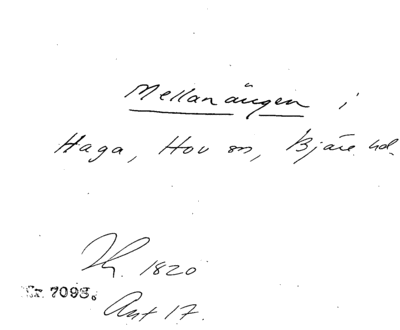 Mellanängen i
Haga, Hov sn, Bjäre hd.
1820
7093.
Ant 17.